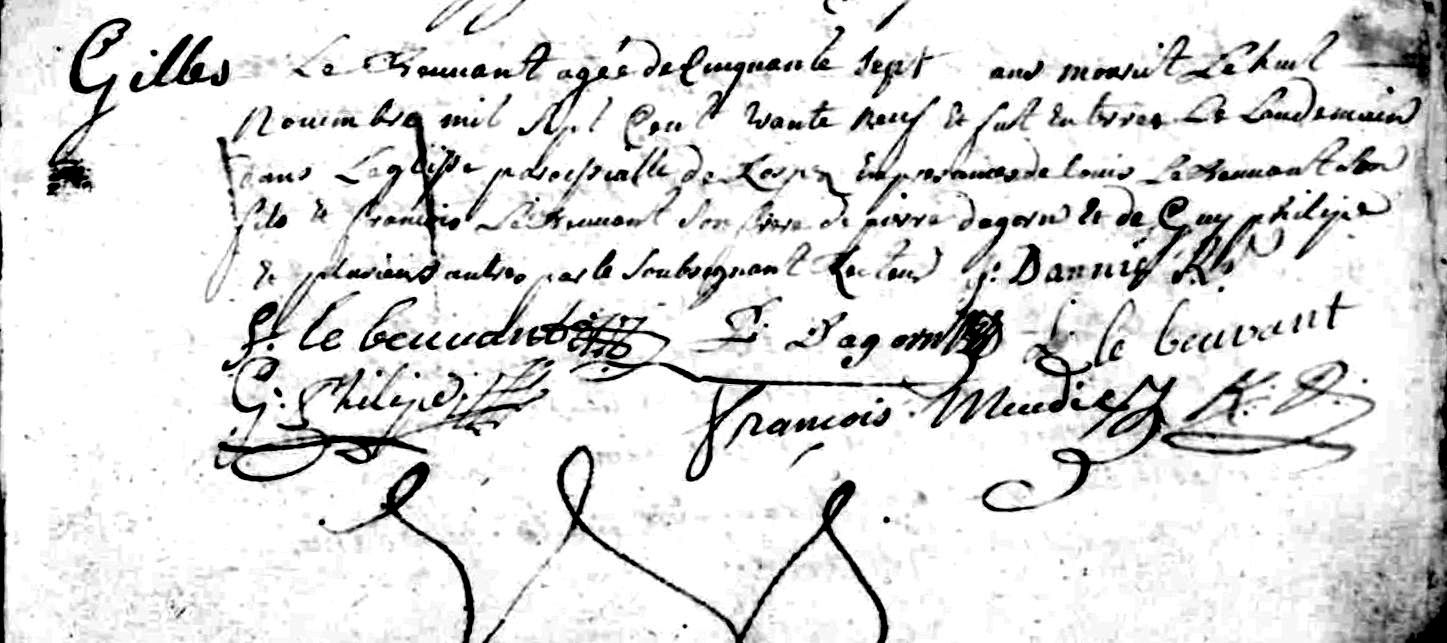 Gilles Le Beuuant agée de Cinquante sept ans mourut Le huit
Nouembre mil Sept Cent trante neuf et fut Enterré Le Landemain
dans Leglisse paroissialle de en presances de louis Le Beuuant son
fils et francois Le Beuuant son frere de pierre dagorn et de Guy philipe
et plusieurs autres par le Soubsignant Recteur
f: le beuuant P: Dagorn L: le beuvant
G: Philipe françois